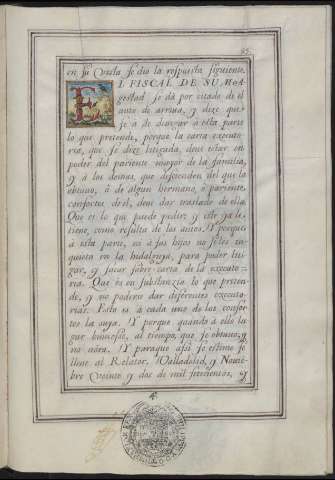 95.
en su Vista se dio la respuesta siguiente.
EL FISCAL DE SU MAgestad
se dà por citado de el
auto de arriva, y dize que
se à de denegar à esta parte
lo que pretende, porque la carta executoria,
que se dize litigada, deve estar en
poder del pariente mayor de la familia,
y à los demas, que descienden del que la
obtuvo, ò de algun hermano, ò pariente
consortes del, deve dar traslado de ella.
Que es lo que puede pedir, y este ya le
tiene, como resulta de los autos. Y porque
à esta parte, ni à sus hijos no se les inquieta
en la hidalguia, para poder litigar,
y sacar sobre carta de la executoria.
Que es en substanzia lo que pretende,
y no poderse dar diferentes executorias.
Esto es à cada uno de los consortes
la suya. Y porque quando à ello lugar
huviesse, al tiempo que se obtuvo, y
no aora. Y paraque assi se estime se
lleve al Relator. Valladolid, y Noviembre
veinte y dos de mil setecientos, y